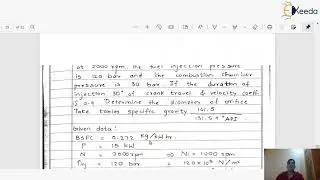 eKeeda
at 2000 rpm, the fuel injection pressure
is 120 bar and the combustion chamber
pressure is 30 bar. If the duration of
injection 30° of crank travel & velocity coeff.
is 0.9 Determine the diameter of orifice
Take tonles specific gravity 141.5
131.5 + °API.
Given data:
BSFC = 0.272 kg/kW hr.
P = 15 kW
N = 2000 rpm ⇒ Ni = 1000 rpm
= 120 bar = 120×10⁵ N/m²